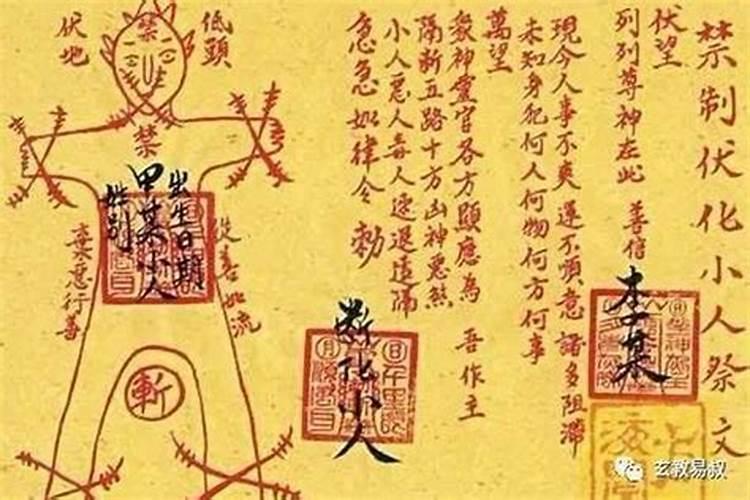 禁制伏化小人祭文
伏望
列列尊神在此 善信
李某
現今人事不爽運不順意諸多阻滯
未知身犯何人何物何方何事
萬望
眾神靈官各方顯應為 吾作主
隔断五路十方凶神惡煞
小人惡人毒人速退遠隔
急急如律令 勅
断化小人
低頭
伏地
禁
禁
出生日期
甲某小人
姓别
從善如流
棄惡行善
斬
玄教易叔